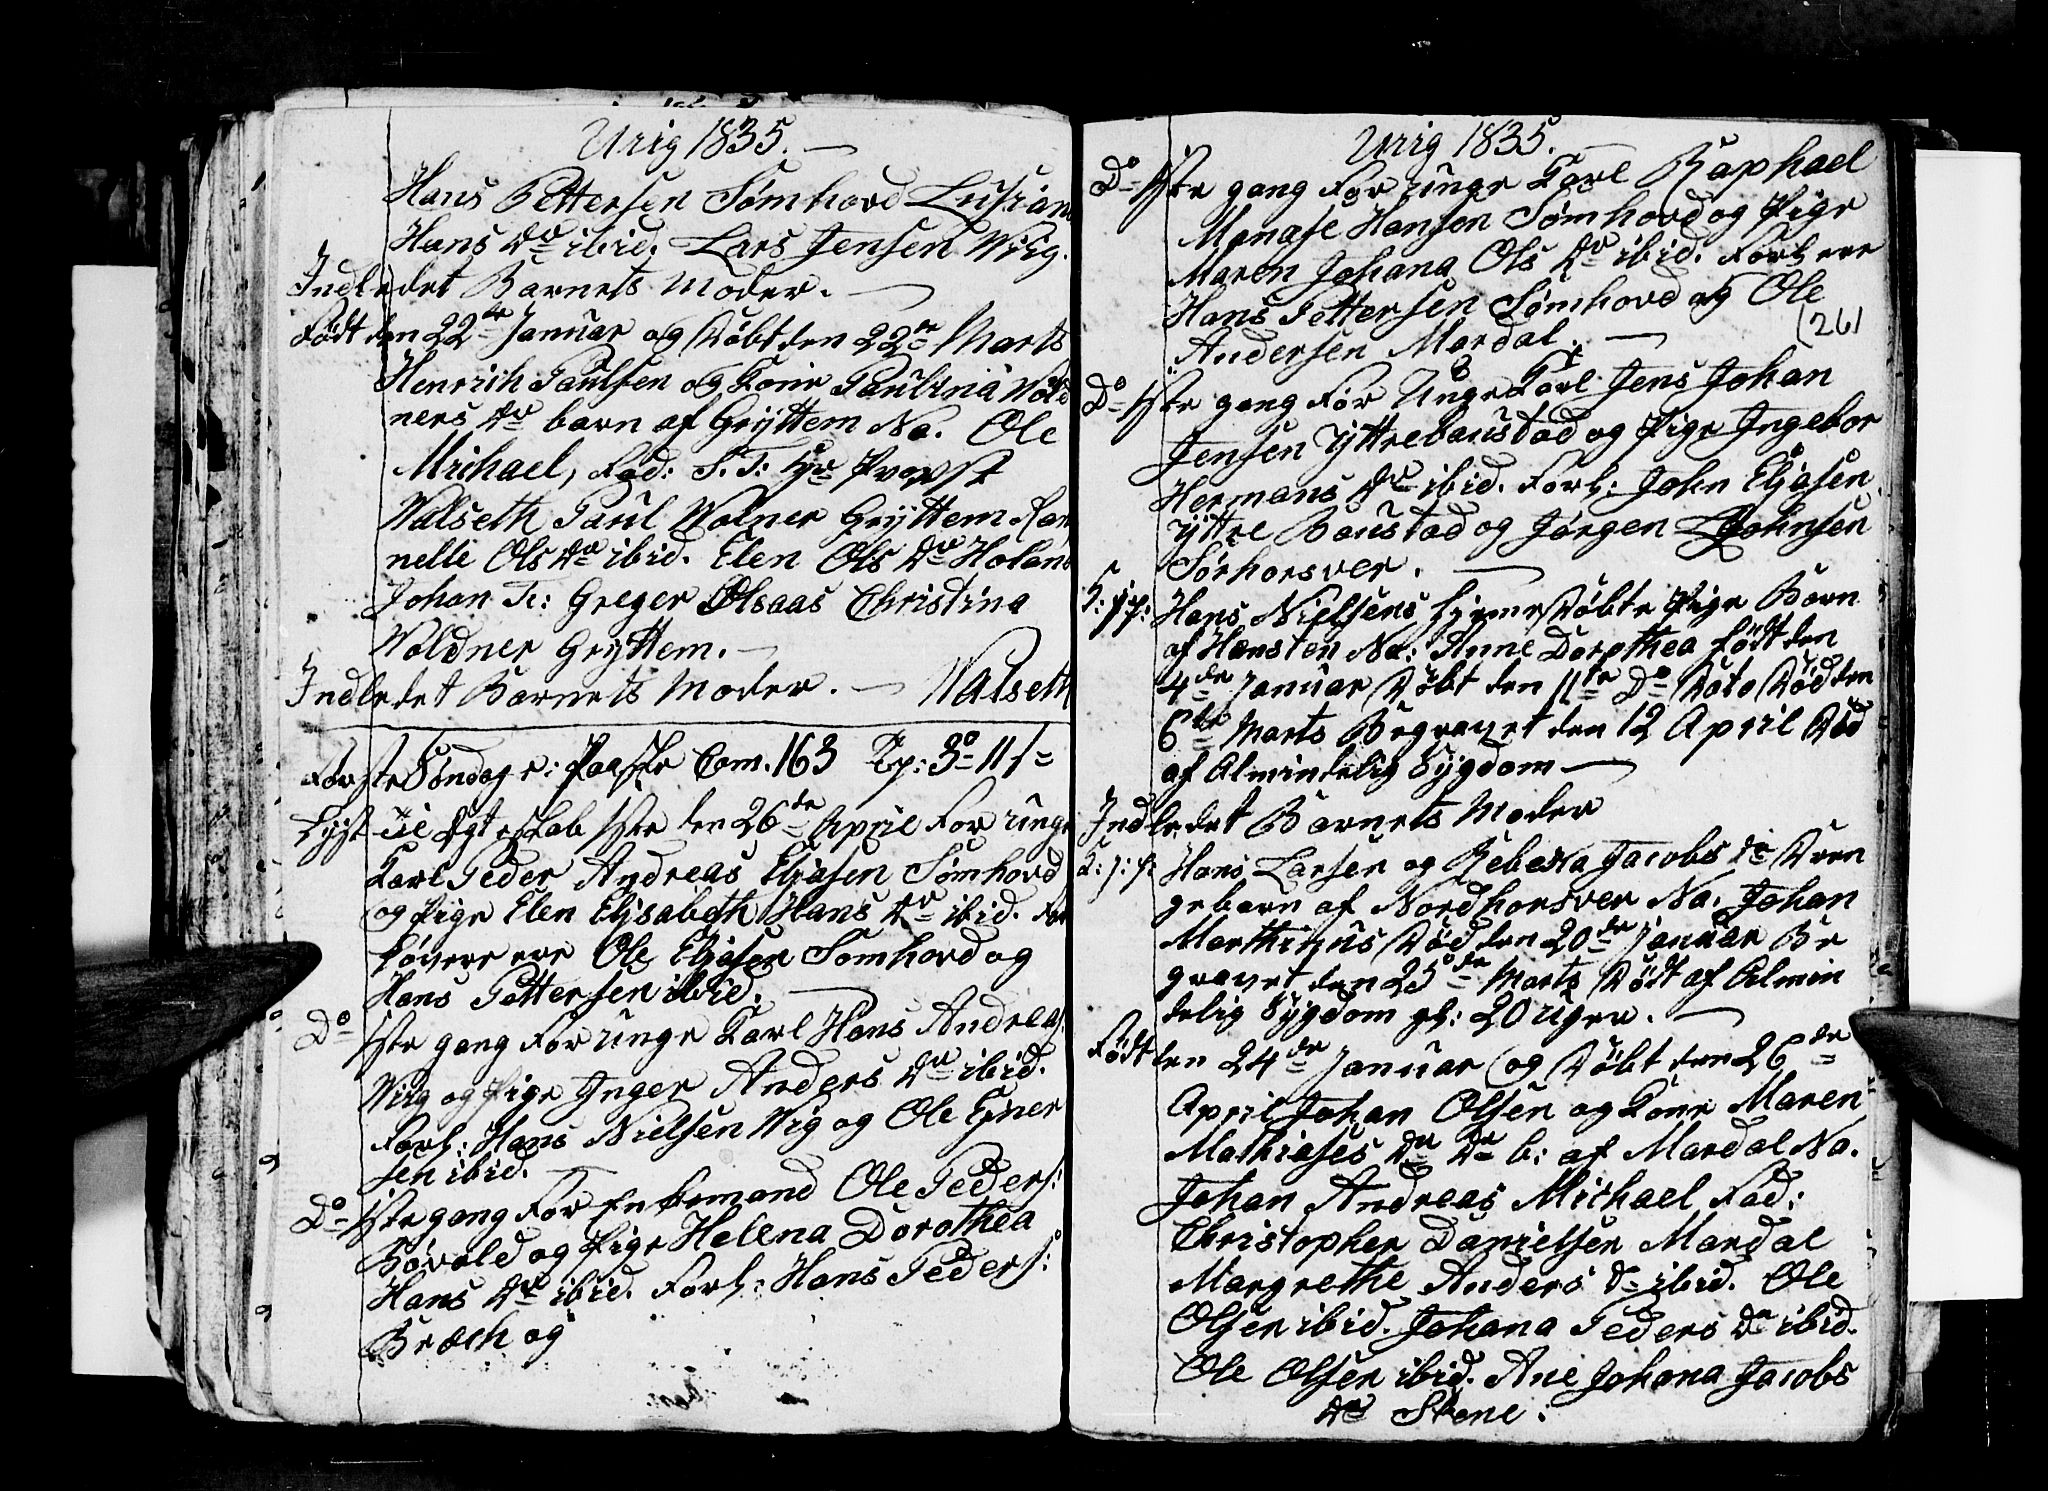 Urig 1835.
Hans Pettersen Sømhovd Lusian
Hans dr ibid. Lars Jensen Wiig.
Indledet Barnets Moder.
Født den 22de Januar og Døbt den 22de Marts
Henrich Paulsen og Kone Paulina Wold
ners dr barn af Gryttem Na. Ole
Michael, Fad: S. T. Hr Propst
Walseth Paul Wolner Gryttem Ran
nelle Ols dr ibid. Elen Ols dr Holand
Johan Fr: Greger Olsaas Christina
Woldner Gryttem.
Indledet Barnets Moder. Walseth
Første Søndag e: Paaske Com. 163 Tp: 3o 11 s
Lyst til Ægteskab 1ste den 26de April For unge
Karl Peder Andreas Eliasen Sømhovd
og Pige Elen Elisabeth Hans dr ibid. For
lovere ere Ole Eliasen Somhovd og
Hans Pettersen ibid.
Do 1ste gang For unge Karl Hans Andreas:
Wiig og Pige Inger Anders dr ibid.
Forl: Hans Nielsen Wig og Ole Ejner
sen ibid.
Do 1ste gang For Enkemand Ole Peders:
Bøvold og Pige Helena Dorothea
Hans dr ibid. Forl: Hans Peders:
Bræch og
Urig 1835.
Do 1ste gang For unge Karl Raphael
Manase Hansen Sømhovd og Pige
Maren Johana Ols dr ibid. Forl: ere
Hans Pettersen Sømhovd og Ole
Andersen Mardal.
261
Do 1ste gang For Unge Karl Jens Johan
Jensen Yttrebaustad og Pige Ingebor
Hermans dr ibid. Forl: John Eliasen
Yttre Baustad og Jørgen Johnsen
Sørhorsver.
T: j: p: Hans Nielsens Hjemedøbte Pige Barn
af Hænsten Na: Anne Dorothea Født den
4de Januar Døbt den 11te Do Dato Død den
6te Marts Begravet den 12 April Død
af Almindelig Sygdom
Indledet Barnets Moder
T: j: p: Hans Larsen og Rebeka Jacobs dr Dren
gebarn af Nordhorsver Na. Johan
Marthinus Død den 20de Januar Be
gravet den 25de Marts Dødt af Almin
delig Sygdom gl: 20 uger.
Født den 24de Januar og Døbt den 26de
April Johan Olsen og Kone Maren
Mathiases dr Dr b: af Mardal Na.
Johan Andreas Michael Fad:
Christopher Danielsen Mardal
Margrethe Anders dr ibid. Ole
Olsen ibid. Johana Peders dr ibid.
Ole Olsen ibid. Ane Johana Jacobs
dr Stene: